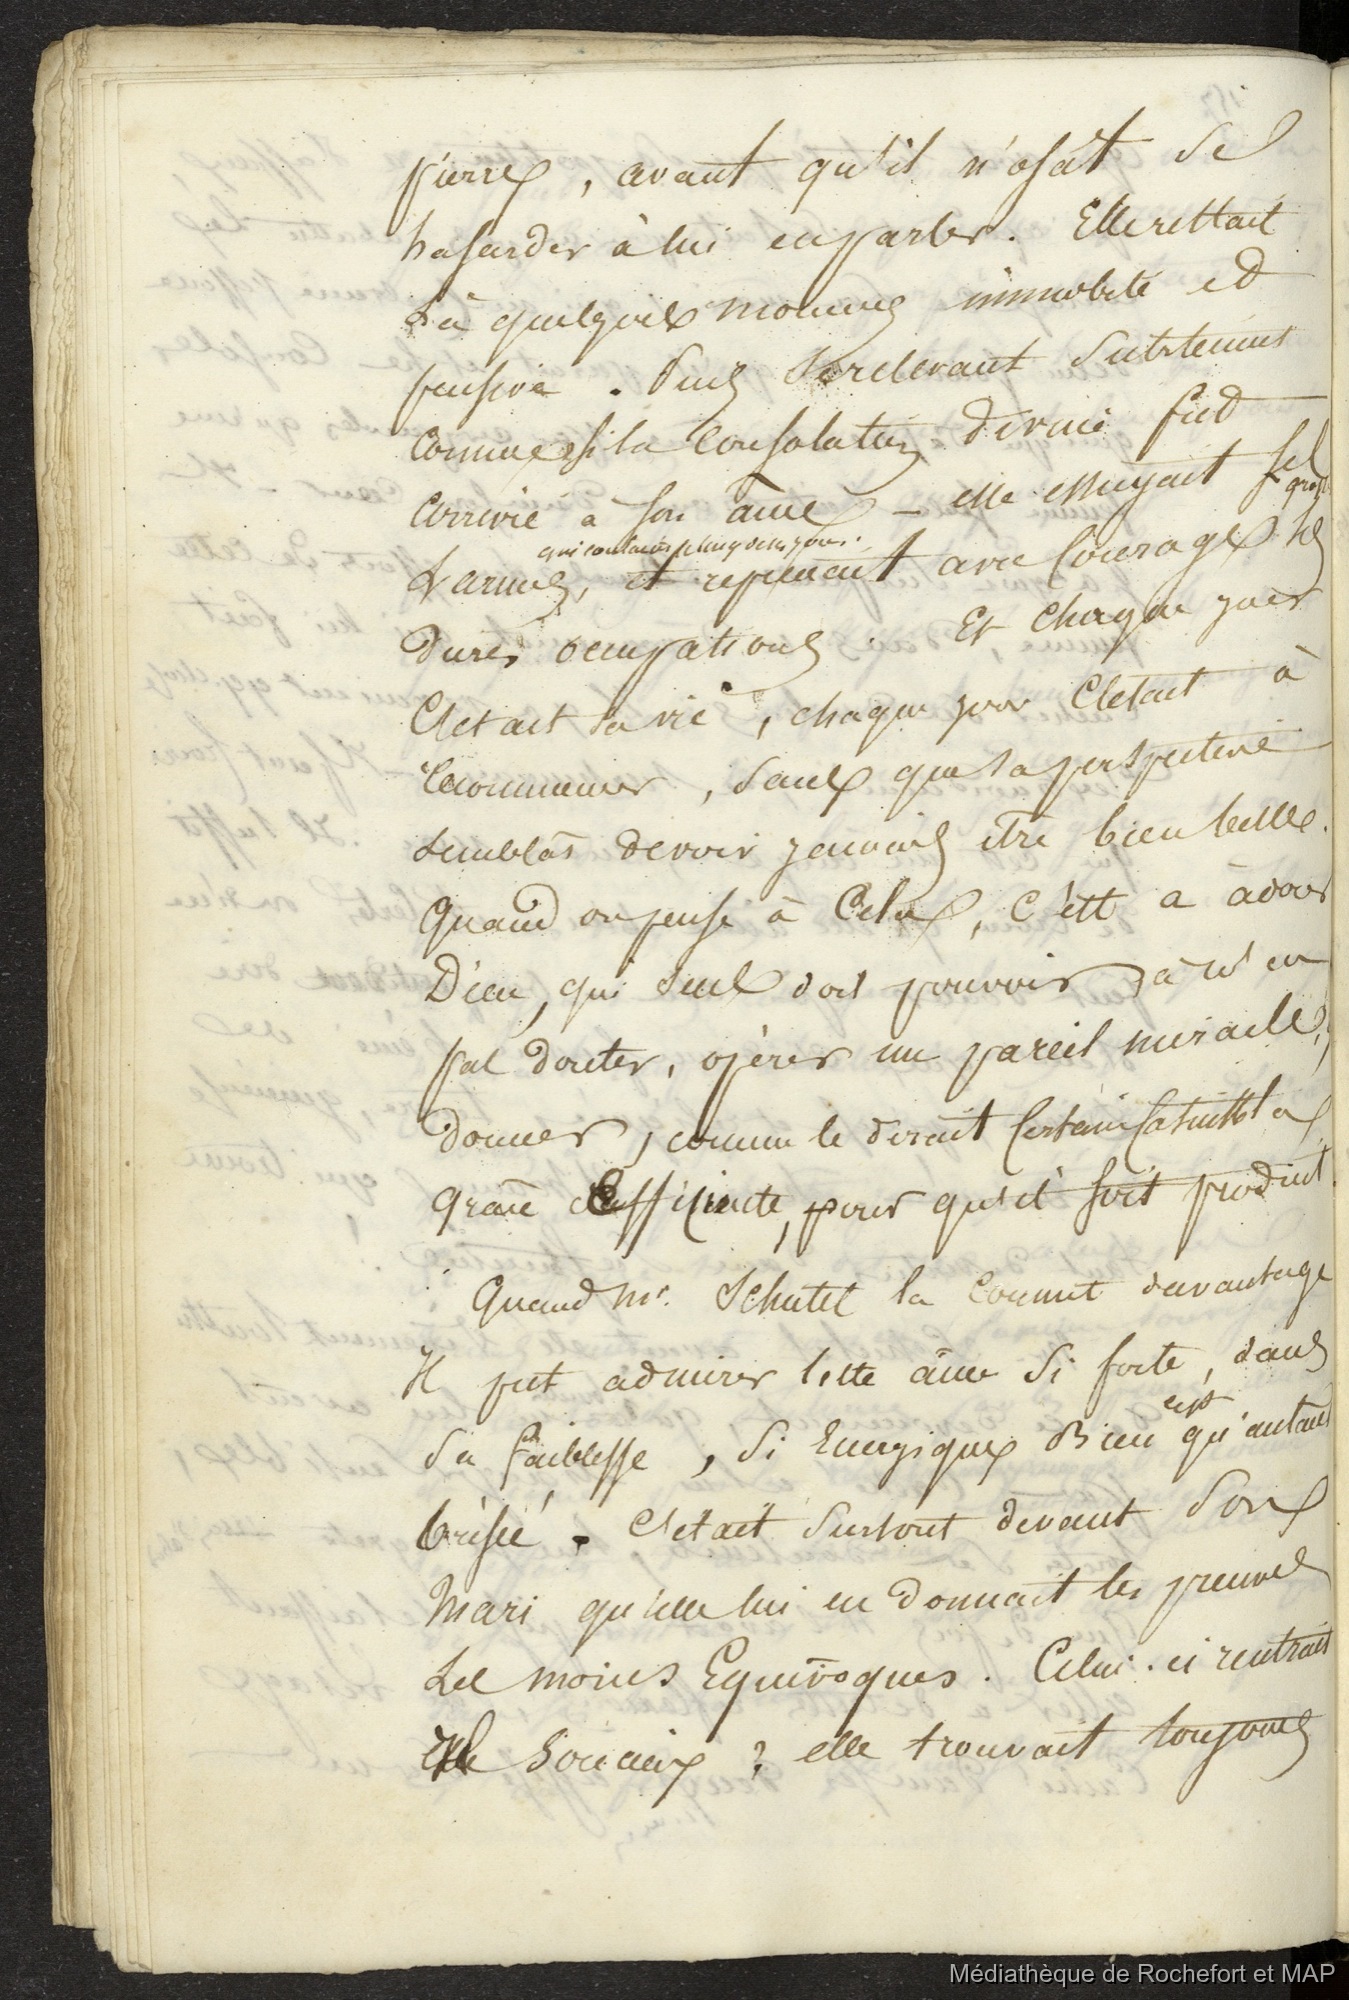 pierre, avant qu'il n'osât se
hasarder à lui en parler. Elle restait
là quelques moments immobile et
pensive. Puis se relevant subitement
comme si la consolation divine fut
arrivée à son âme – elle essuyait ses
gros
qui coulaient plus que des yeux.
larmes, et reprenait avec courage ses
dures occupations. Et chaque jour
c'etait sa vie, chaque jour c'etait à
recommencer, sans que sa perspective
semblât devoir jamais être bien belle.
Quand on pense à cela, c'est a adorer
Dieu, qui seul doit pouvoir, à n'en
pas douter, opérer un pareil miracle,
donner, comme le dirait certain
grace efficiente, pour qu'il soit produit.
Quand Mr. Schutel la connut davantage
il put admirer cette âme si forte, dans
sa faiblesse, si energique bien qu'autant
brisée. C'etait surtout devant son
mari qu'elle lui en donnait les preuves
les moins equivoques. Celui-ci rentrait
il soucieux ? elle trouvait toujours
Médiathèque de Rochefort et MAP